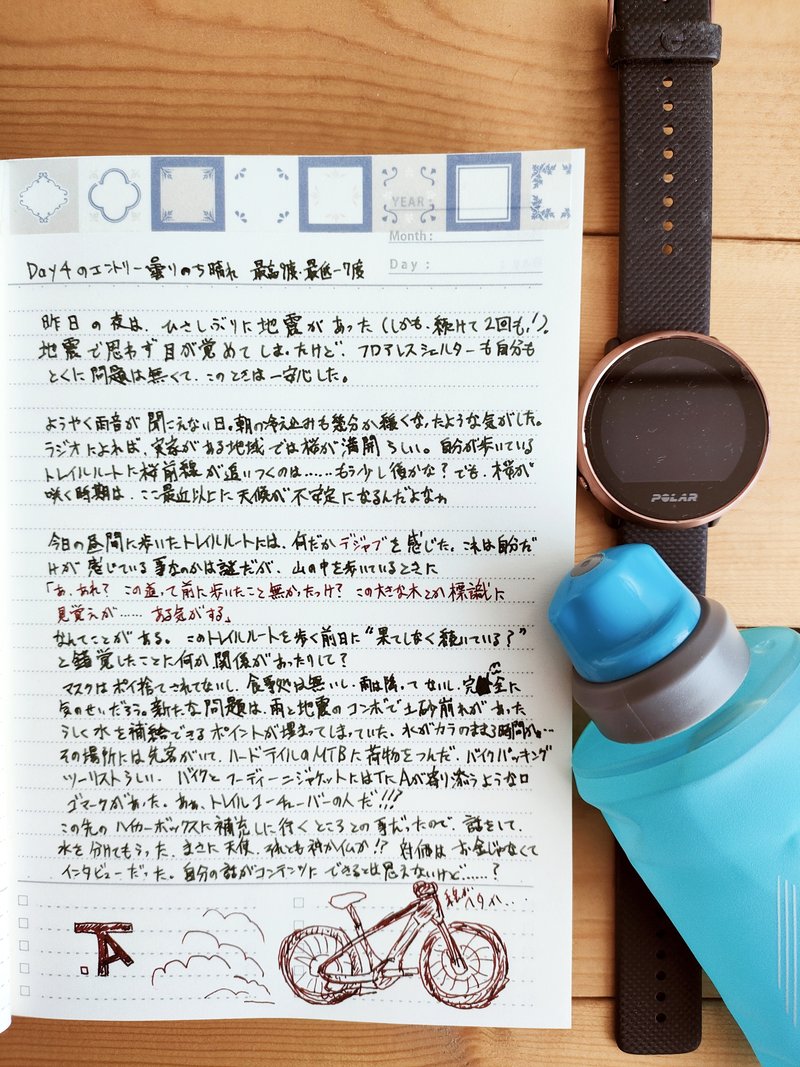 YEAR:
Month :
Day :
Day4のエントリー 曇りのち晴れ 最高9度・最低-7度
昨日の夜は、ひさしぶりに地震があった(しかも、続けて2回も!)。
地震で思わず目が覚めてしまったけど、フロアレスシェルターも自分も
とくに問題は無くて、このときは一安心した。
ようやく雨音が聞こえない日。朝の冷え込みも幾分か緩くなったような気がした。
ラジオによれば、実家がある地域では桜が満開らしい。自分が歩いている
トレイルルートに桜前線が追いつくのは……もう少し後かな?でも、桜が
咲く時期は、ここ最近以上に天候が不安定になるんだよなぁ
今日の昼間に歩いたトレイルルートには、何だかデジャブを感じた。これは自分だ
けが感じている事なのかは謎だが、山の中を歩いているときに
「あ、あれ? この道って前に歩いたこと無かったっけ? この大きな木とか標識に
見覚えが…… ある気がする」
なんてことがある。このトレイルルートを歩く前日に"果てしなく続いている?"
と錯覚したことに何か関係があったりして?
マスクはポイ捨てされてないし、食事処は無いし、雨は降ってないし、完全に
気のせいだろう。新たな問題は、雨と地震のコンボで土砂崩れがあった
らしく水を補給できるポイントが埋まってしまっていた。水がカラのまま3時間か…
その場所には先客がいて、ハードテイルのMTBに荷物をつんだ、バイクパッキング
ツーリストらしい。バイクとフーディーニジャケットにはTにAが寄り添うようなロ
ゴマークがあった。あぁ、トレイルユーチューバーの人だ!!!
この先のハイカーボックスに補充しに行くところとの事だったので、話をして、
水を分けてもらった。まさに天使、それとも神か仏か!? 対価はお金じゃなくて
インタビューだった。自分の話がコンテンツにできるとは思えないけど……?
絵がヘタか…
TA
POLAR